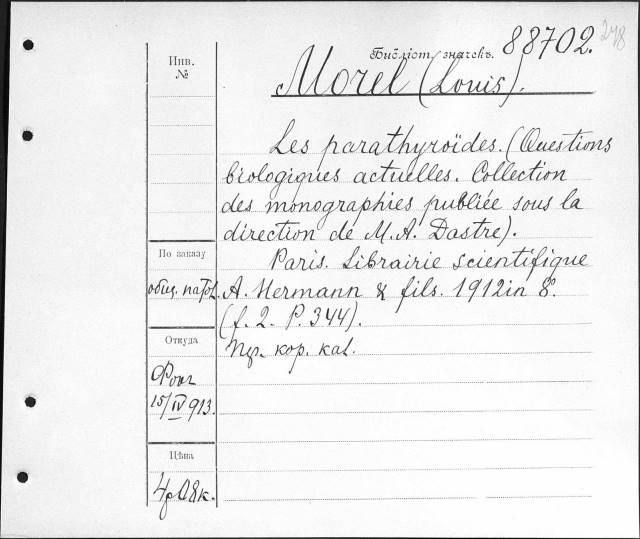 248
Библіот. значекъ. 88702.
Инв.
№
Morel (Louis).
Les parathyroïdes. (Questions
biologiques actuelles. Collection
des monographies publiée sous la
direction de M. A. Dastre).
По заказу
общ. патол.
Paris. Librairie scientifique
A. Hermann & fils. 1912 in 8.
(f. 2. P. 344).
Откуда
кор. kat.
15/IV 913.
Цѣна
4р 08к.